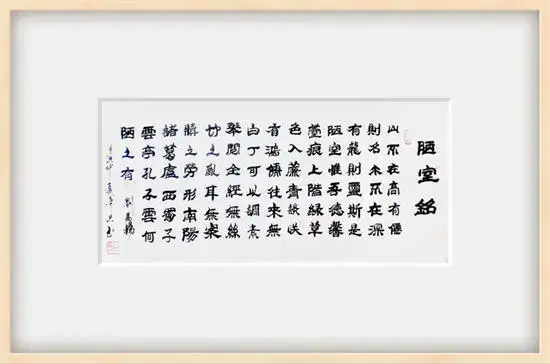 陋室銘
山不在高有僊
則名水不在深
有龍則靈斯是
陋室惟吾德馨
痕上階緑草
色入簾青談咲
有鴻儒往來無
白丁可以調素
琴閱金經無絲
竹之亂耳無案
牘之勞形南陽
諸葛廬西蜀子
雲亭孔子雲何
陋之有 劉禹錫